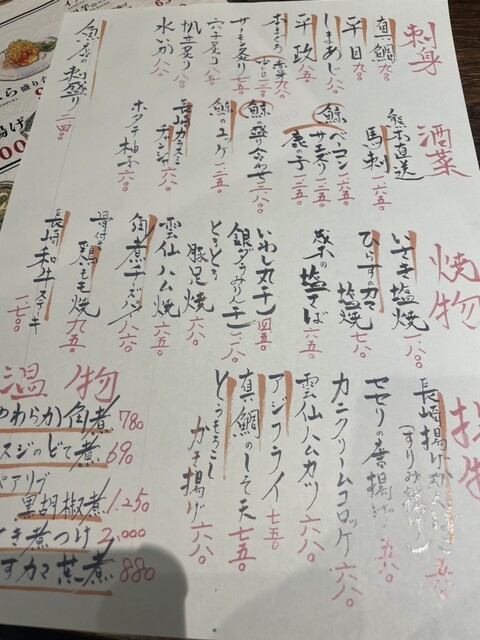 刺身
真鯛 九〇
平目 九〇
しまあじ 八〇
平政 八五〇
本まぐろ 赤身 九〇
中トロ 一三〇
サーモン炙り 八五
穴子炙り 八〇
帆立炙り 八八〇
水いか 八八〇
魚菜の刺盛り 二四〇
酒菜
熊本直送
馬刺 一六五〇
鯨ベーコン 一六五〇
鯨サエズリ 一三五〇
鯨鹿の子 一三五〇
鯨の盛り合わせ 二八〇
鯨のユッケ 一二五〇
長崎カラスミ
チャンジャ 六八〇
ホタテ柚子 六八〇
焼物
いさき塩焼 一八〇
ひらすのカマ
塩焼 七八〇
炭の塩さば 六五〇
いわし丸干 四五〇
銀ダラみりん干 一二〇
とろとろ
豚足焼 六八〇
雲仙ハム焼 六五〇
角煮チーズパイ 八六〇
骨付き
鶏もも焼 九五〇
長崎和牛ステーキ 一七〇
揚物
長崎揚げかまぼこ
(すりみ揚げ)
セセリの唐揚げ 五八〇
カニクリームコロッケ 六八〇
雲仙ハムカツ 六八〇
アジフライ 七五〇
真鯛のしそ天 七五〇
とうもろこし
かき揚げ 六八〇
温物
やわらか角煮 780
スジのどて煮 690
ペアリブ
黒胡椒煮 1.250
さき煮つけ 2.000
すカマ 煮 880